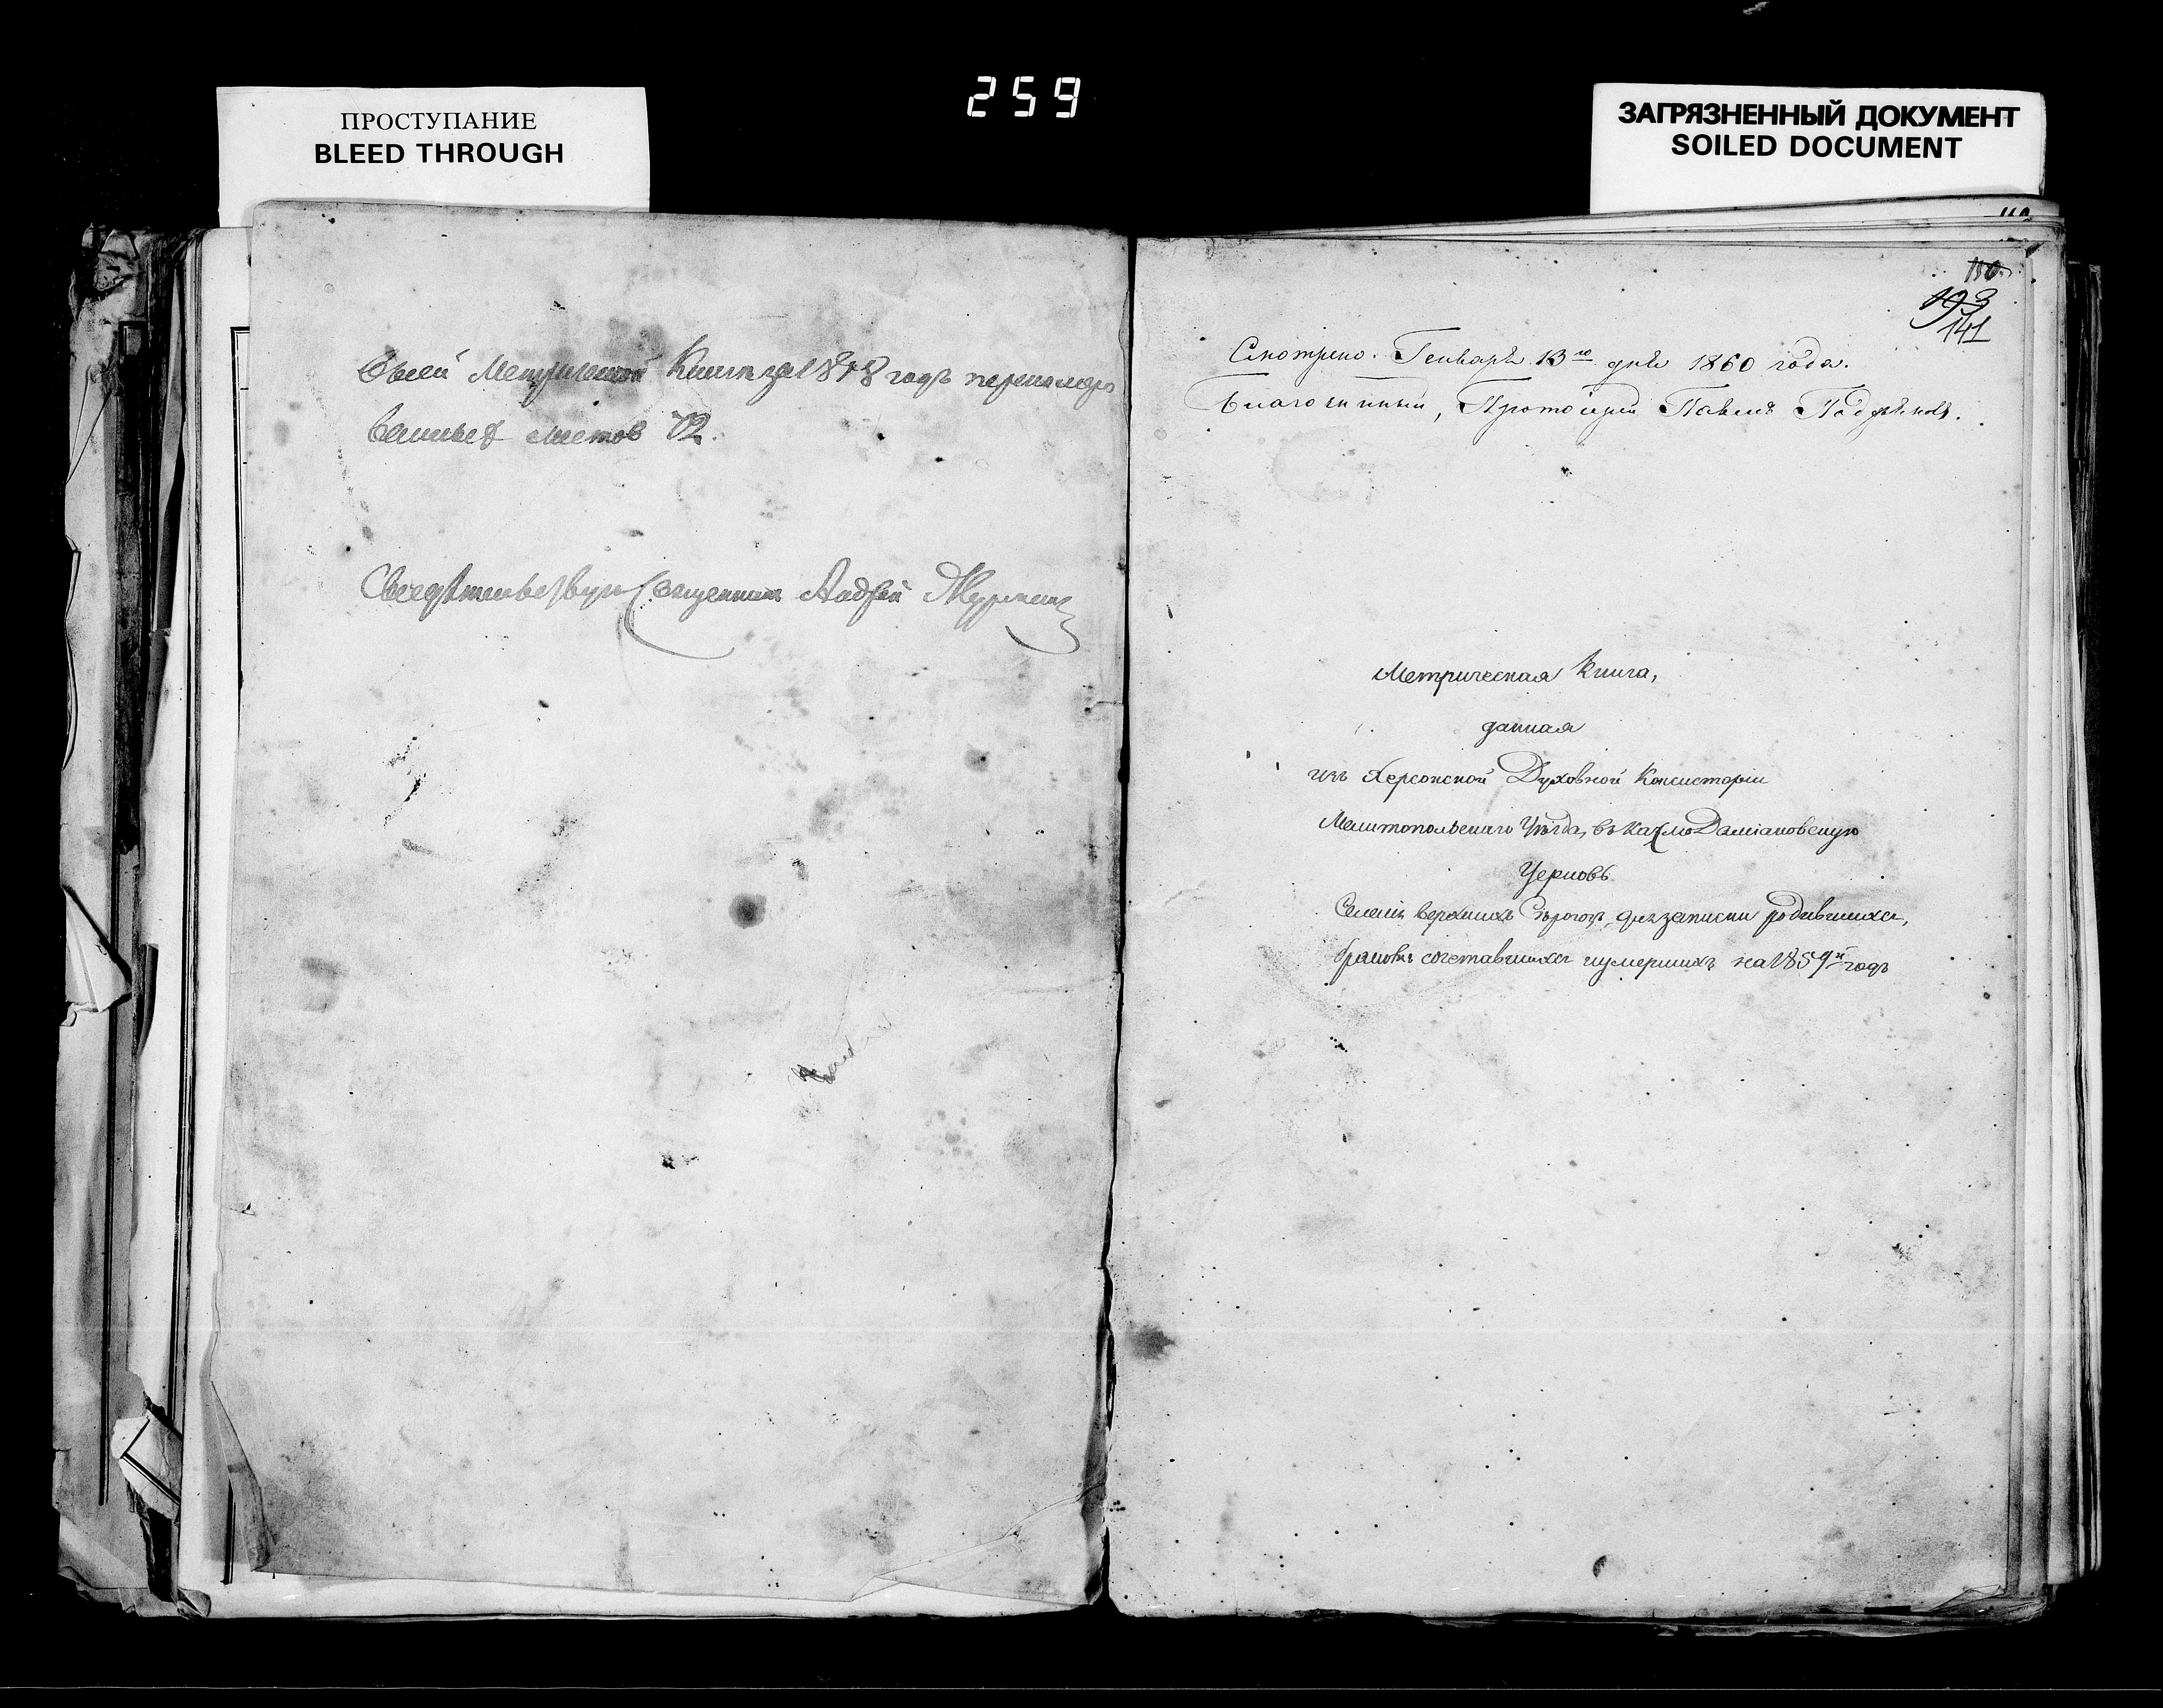 259
ПРОСТУПАНИЕ
BLEED THROUGH
ЗАГРЯЗНЕННЫЙ ДОКУМЕНТ
SOILED DOCUMENT
Въ сей Метрической Книги за 18 8 годъ
листов 72.
Священник Андрей
110
141
Смотрено. Генваря 13го дня 1860 года.
Благочинный, Протоіерей Павелъ
Метрическая Книга,
данная
изъ Херсонской Духовной Консисторіи
Мелитопольскаго Уѣзда, въ Казмо Даміановскую
Церковь
Селенія верхнихъ Сѣрогозъ, для записки родившихся,
браком сочетавшихся и умершихъ на 1859й годъ